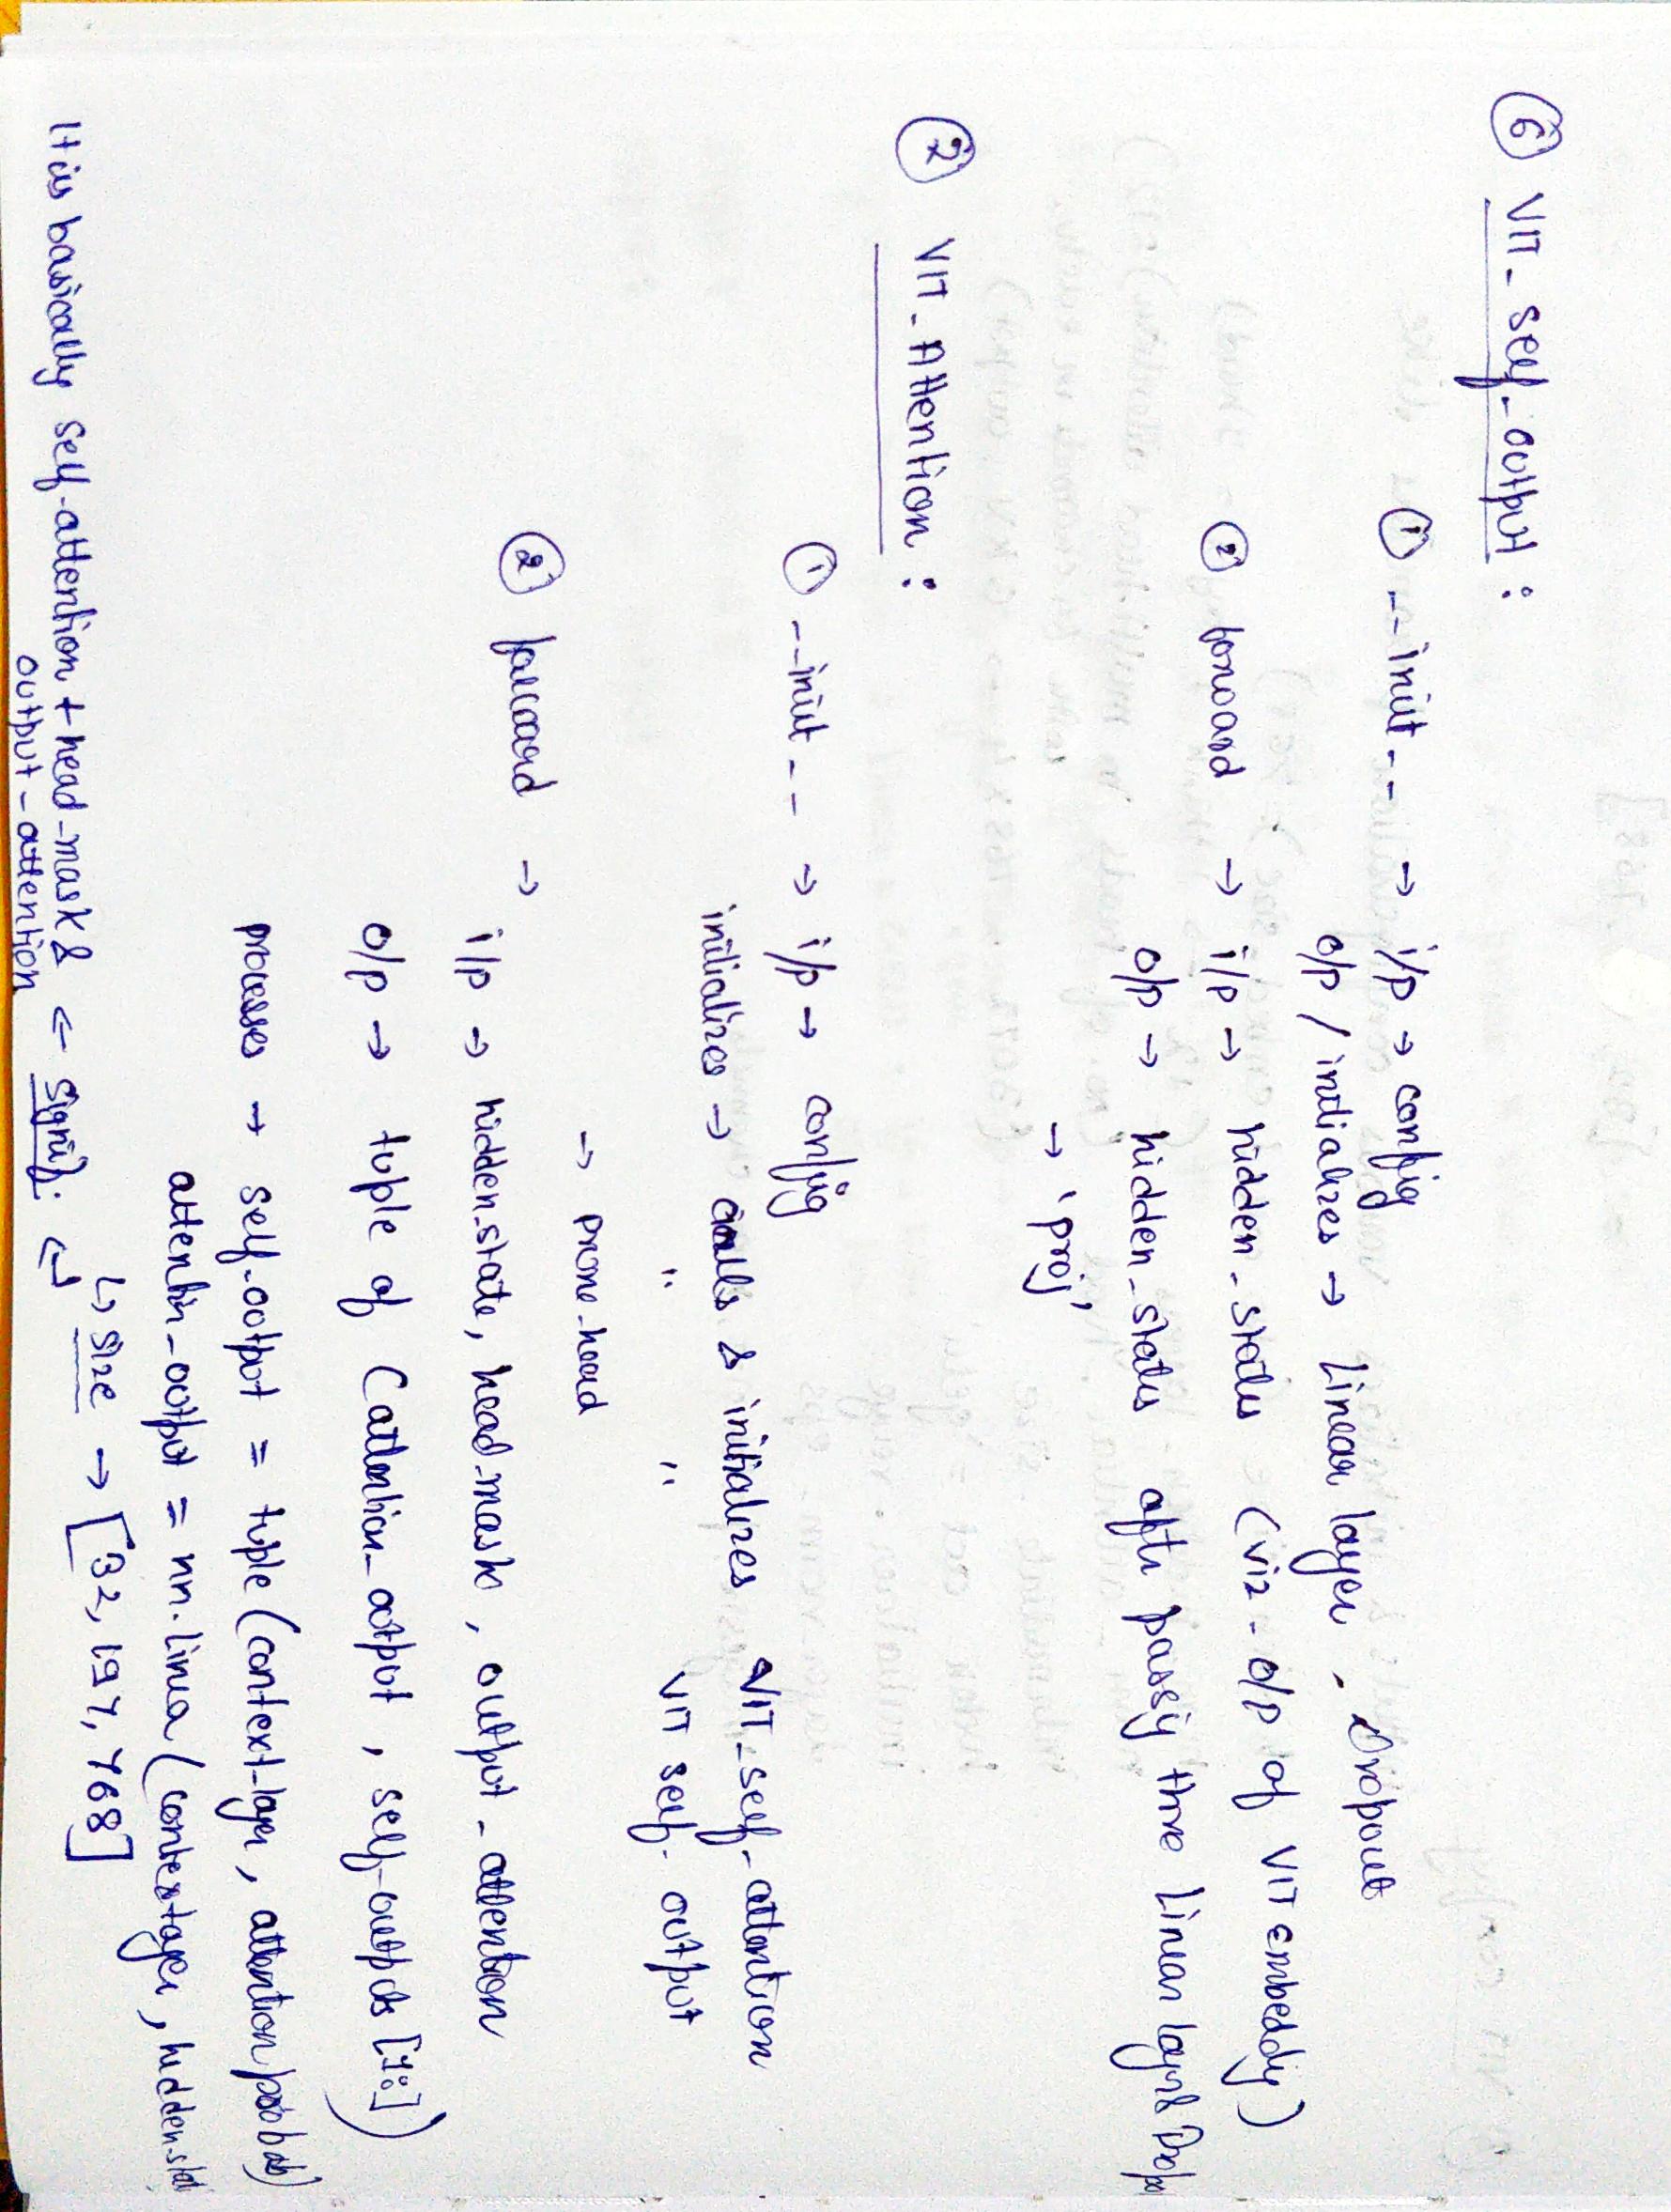 ⑥ VIT_self_output :
① __init__ → i/p → config
o/p / initializes → Linear layer, Dropout
② forward → i/p → hidden_states (viz - o/p of VIT embeddg)
o/p → hidden_states aftr passig thro Linear layr &
→ 'proj'
⑦ VIT_Attention :
① __init__ → i/p → config
initializes → calls & initializes VIT_self_attention
" " VIT self_output
→ prune_head
② forward → i/p → hidden_state, head_mask, output_attention
o/p → tuple of (attention_output, self_outputs [1:])
processes → self_output = tuple (context_layer, attention probab)
attention_output = nn.linea (contextlayer, hiddenstat
↳ size → [32, 197, 768]
It is basically self-attention + head-mask & ← signif. ↵
output-attention